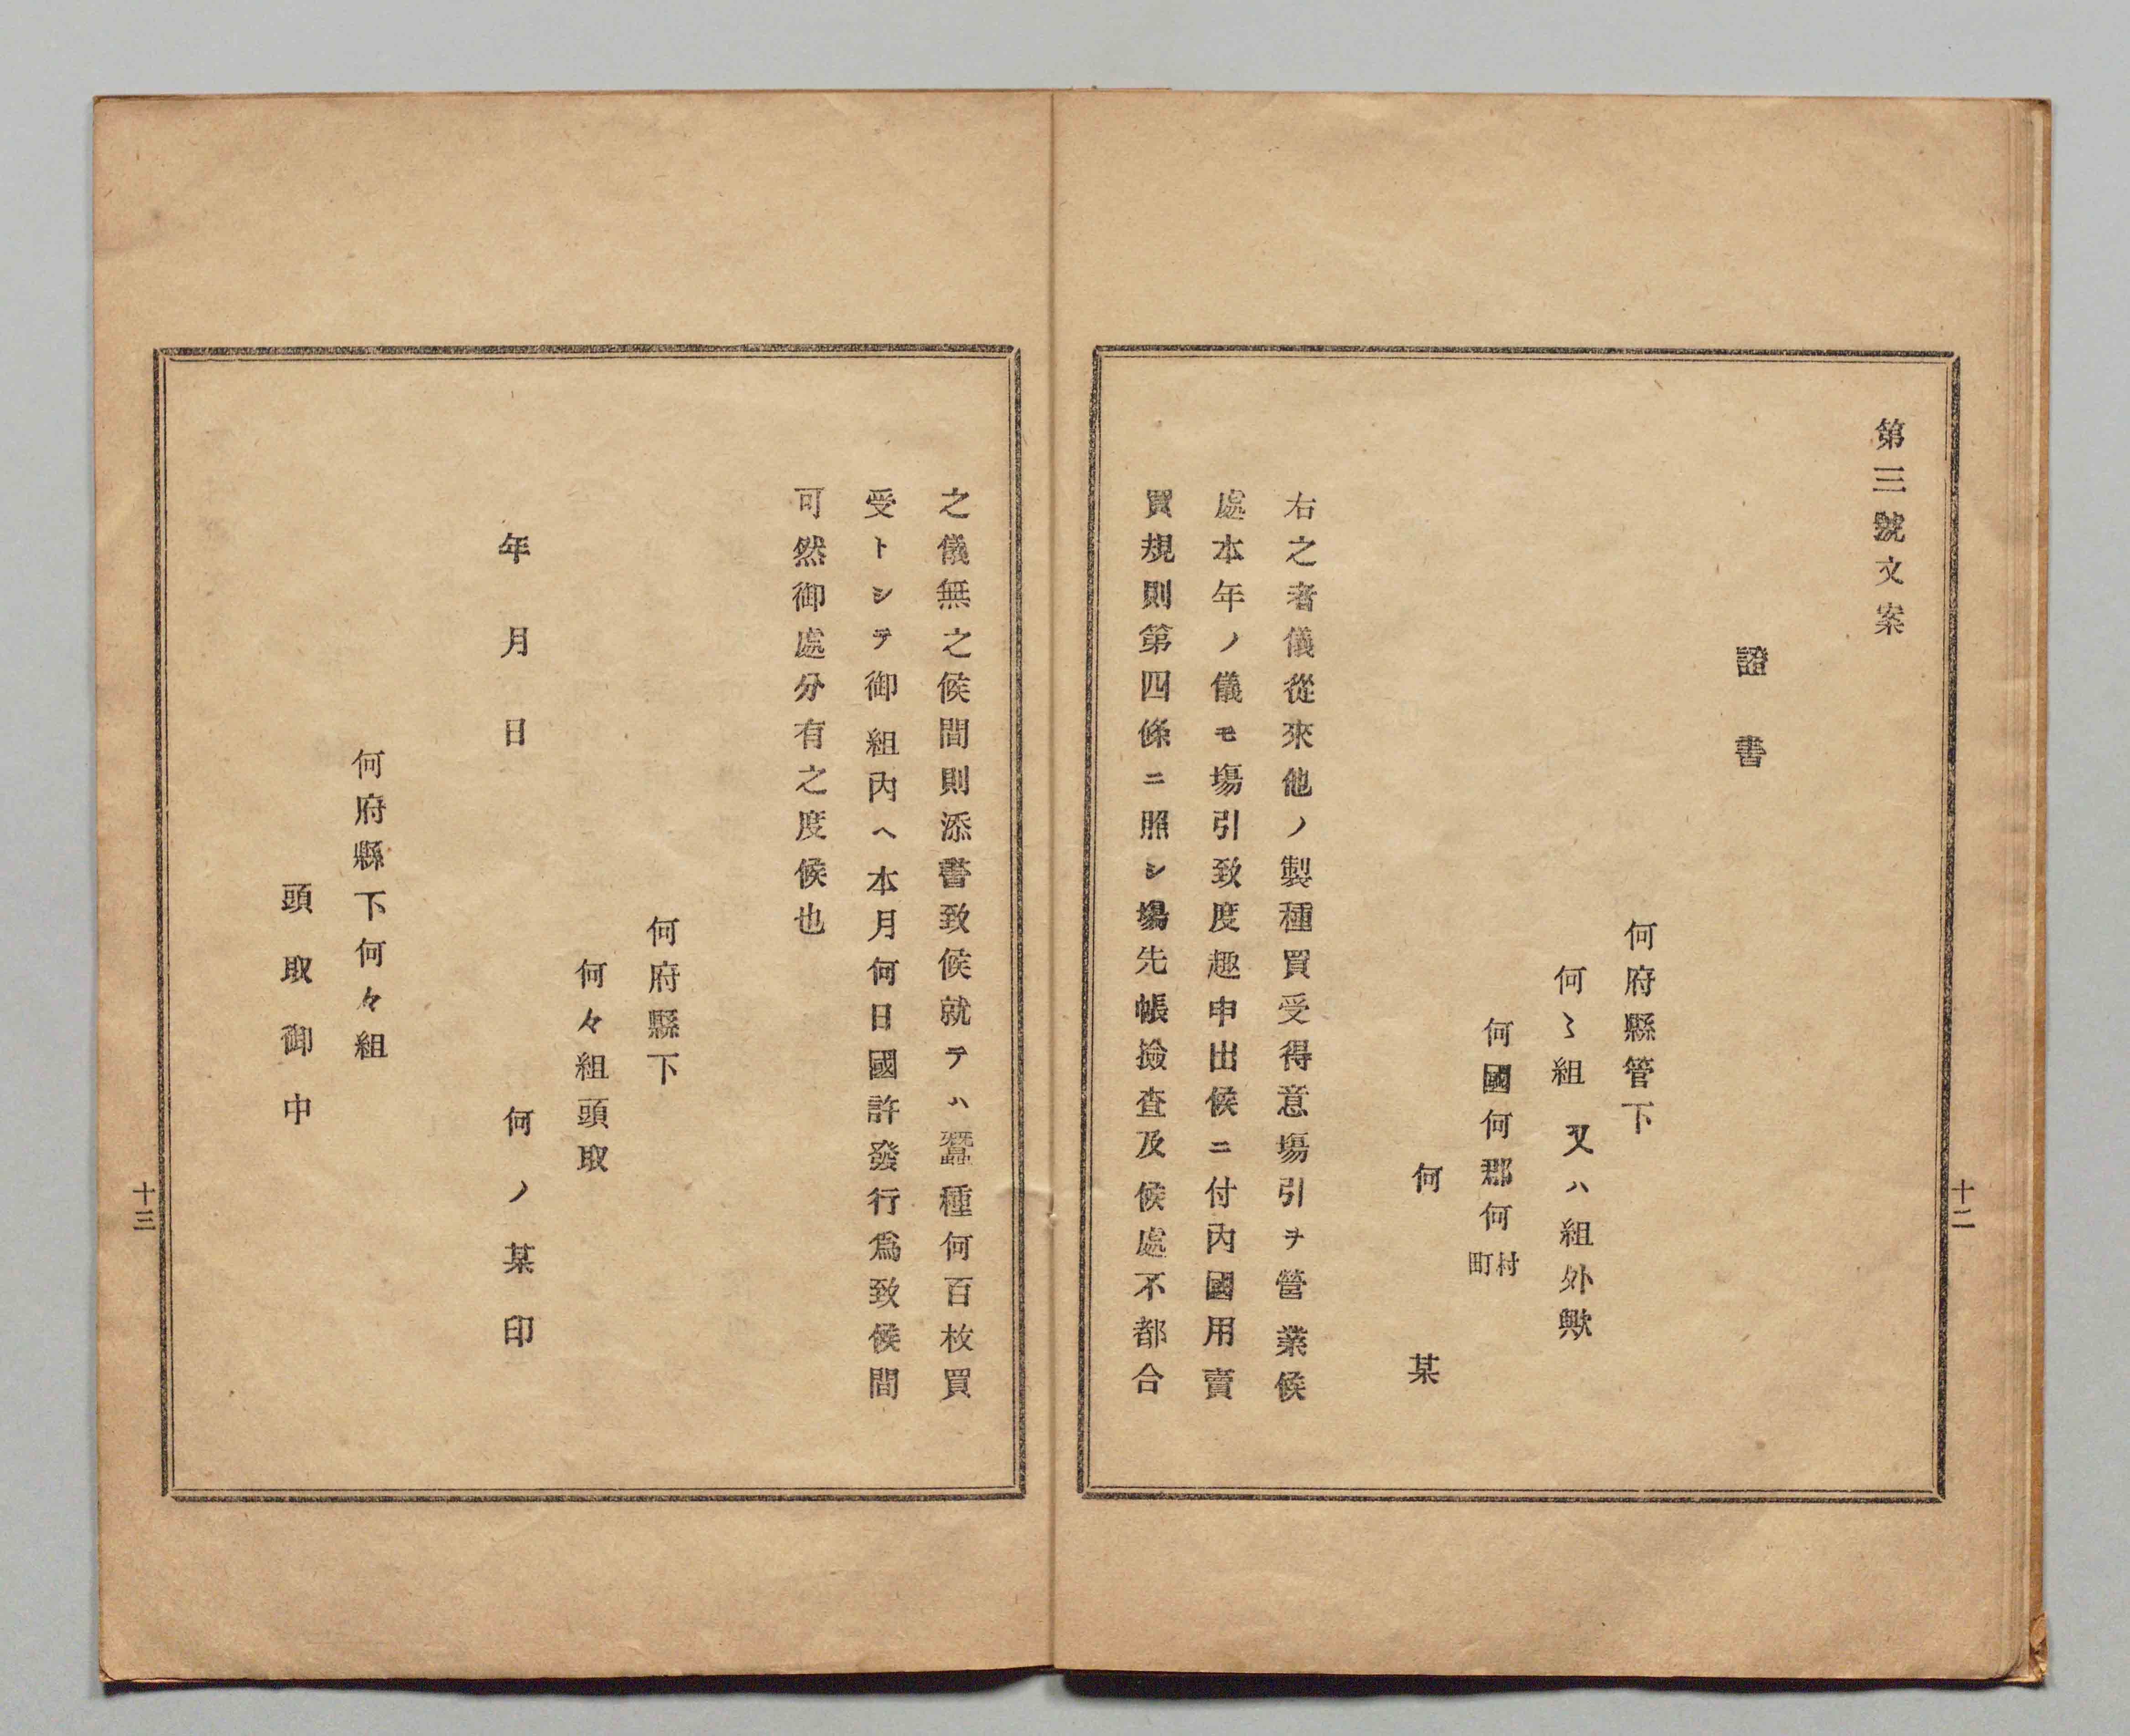 第三號文案
證書
何府縣管下
何〻組 又ハ組外歟
何國何郡何村町
何某
右之者儀從來他ノ製種買受得意塲引ヲ營業候
處本年ノ儀モ塲引致度趣申出候ニ付內國用賣
買規則第四條ニ照シ塲先帳撿查及候處不都合
十二
之儀無之候間則添書致候就テハ蠶種何百枚買
受トシテ御組內へ本月何日國許發行爲致候間
可然御處分有之度候也
何府縣下
何々組頭取
年月日 何ノ某印
何府縣下何々組
頭取御中
十三